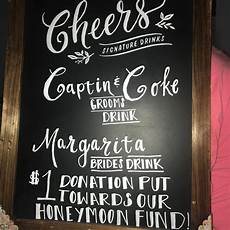 Cheers
SIGNATURE DRINKS
Captin & Coke
GROOMS
DRINK
Margarita
BRIDES DRINK
$1 DONATION PUT
TOWARDS OUR
HONEYMOON FUND!